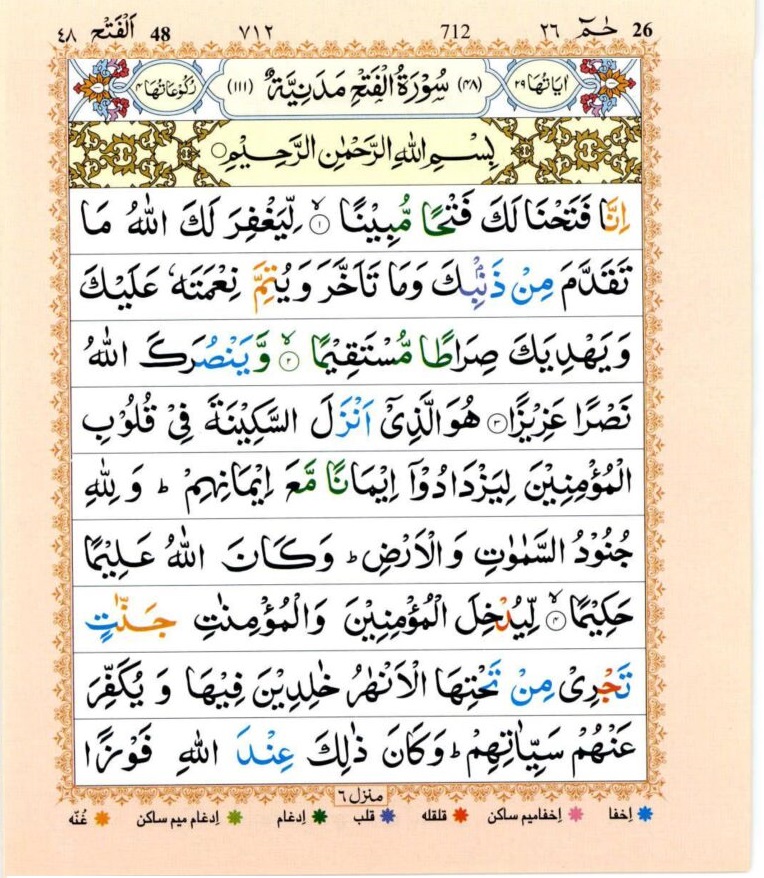 26 حٰمٓ ٢٦ 712 ٧١٢ 48 اَلْفَتْح ٤٨
اٰيَاتُهَا ٢٩ (٤٨) سُوْرَةُ الْفَتْحِ مَدَنِيَّةٌ (١١١) رُكُوْعَاتُهَا ٤
بِسْمِ اللهِ الرَّحْمٰنِ الرَّحِيْمِ ○
اِنَّا فَتَحْنَا لَكَ فَتْحًا مُّبِيْنًا ۙ‏﴿١﴾ لِّيَغْفِرَ لَكَ اللهُ مَا
تَقَدَّمَ مِنْ ذَنْۢبِكَ وَمَا تَاَخَّرَ وَيُتِمَّ نِعْمَتَهٗ عَلَيْكَ
وَيَهْدِيَكَ صِرَاطًا مُّسْتَقِيْمًا ۙ‏﴿٢﴾ وَّيَنْصُرَكَ اللهُ
نَصْرًا عَزِيْزًا ﴿٣﴾ هُوَ الَّذِيْۤ اَنْزَلَ السَّكِيْنَةَ فِيْ قُلُوْبِ
الْمُؤْمِنِيْنَ لِيَزْدَادُوْۤا اِيْمَانًا مَّعَ اِيْمَانِهِمْ ؕ وَ لِلّٰهِ
جُنُوْدُ السَّمٰوٰتِ وَ الْاَرْضِ ؕ وَكَانَ اللهُ عَلِيْمًا
حَكِيْمًا ۙ‏﴿٤﴾ لِّيُدْخِلَ الْمُؤْمِنِيْنَ وَالْمُؤْمِنٰتِ جَنّٰتٍ
تَجْرِيْ مِنْ تَحْتِهَا الْاَنْهٰرُ خٰلِدِيْنَ فِيْهَا وَ يُكَفِّرَ
عَنْهُمْ سَيِّاٰتِهِمْ ؕ وَكَانَ ذٰلِكَ عِنْدَ اللهِ فَوْزًا
منزل ٦
اِخفا اِخفامیم ساکن قلقله قلب اِدغام اِدغام میم ساکن غُنّه